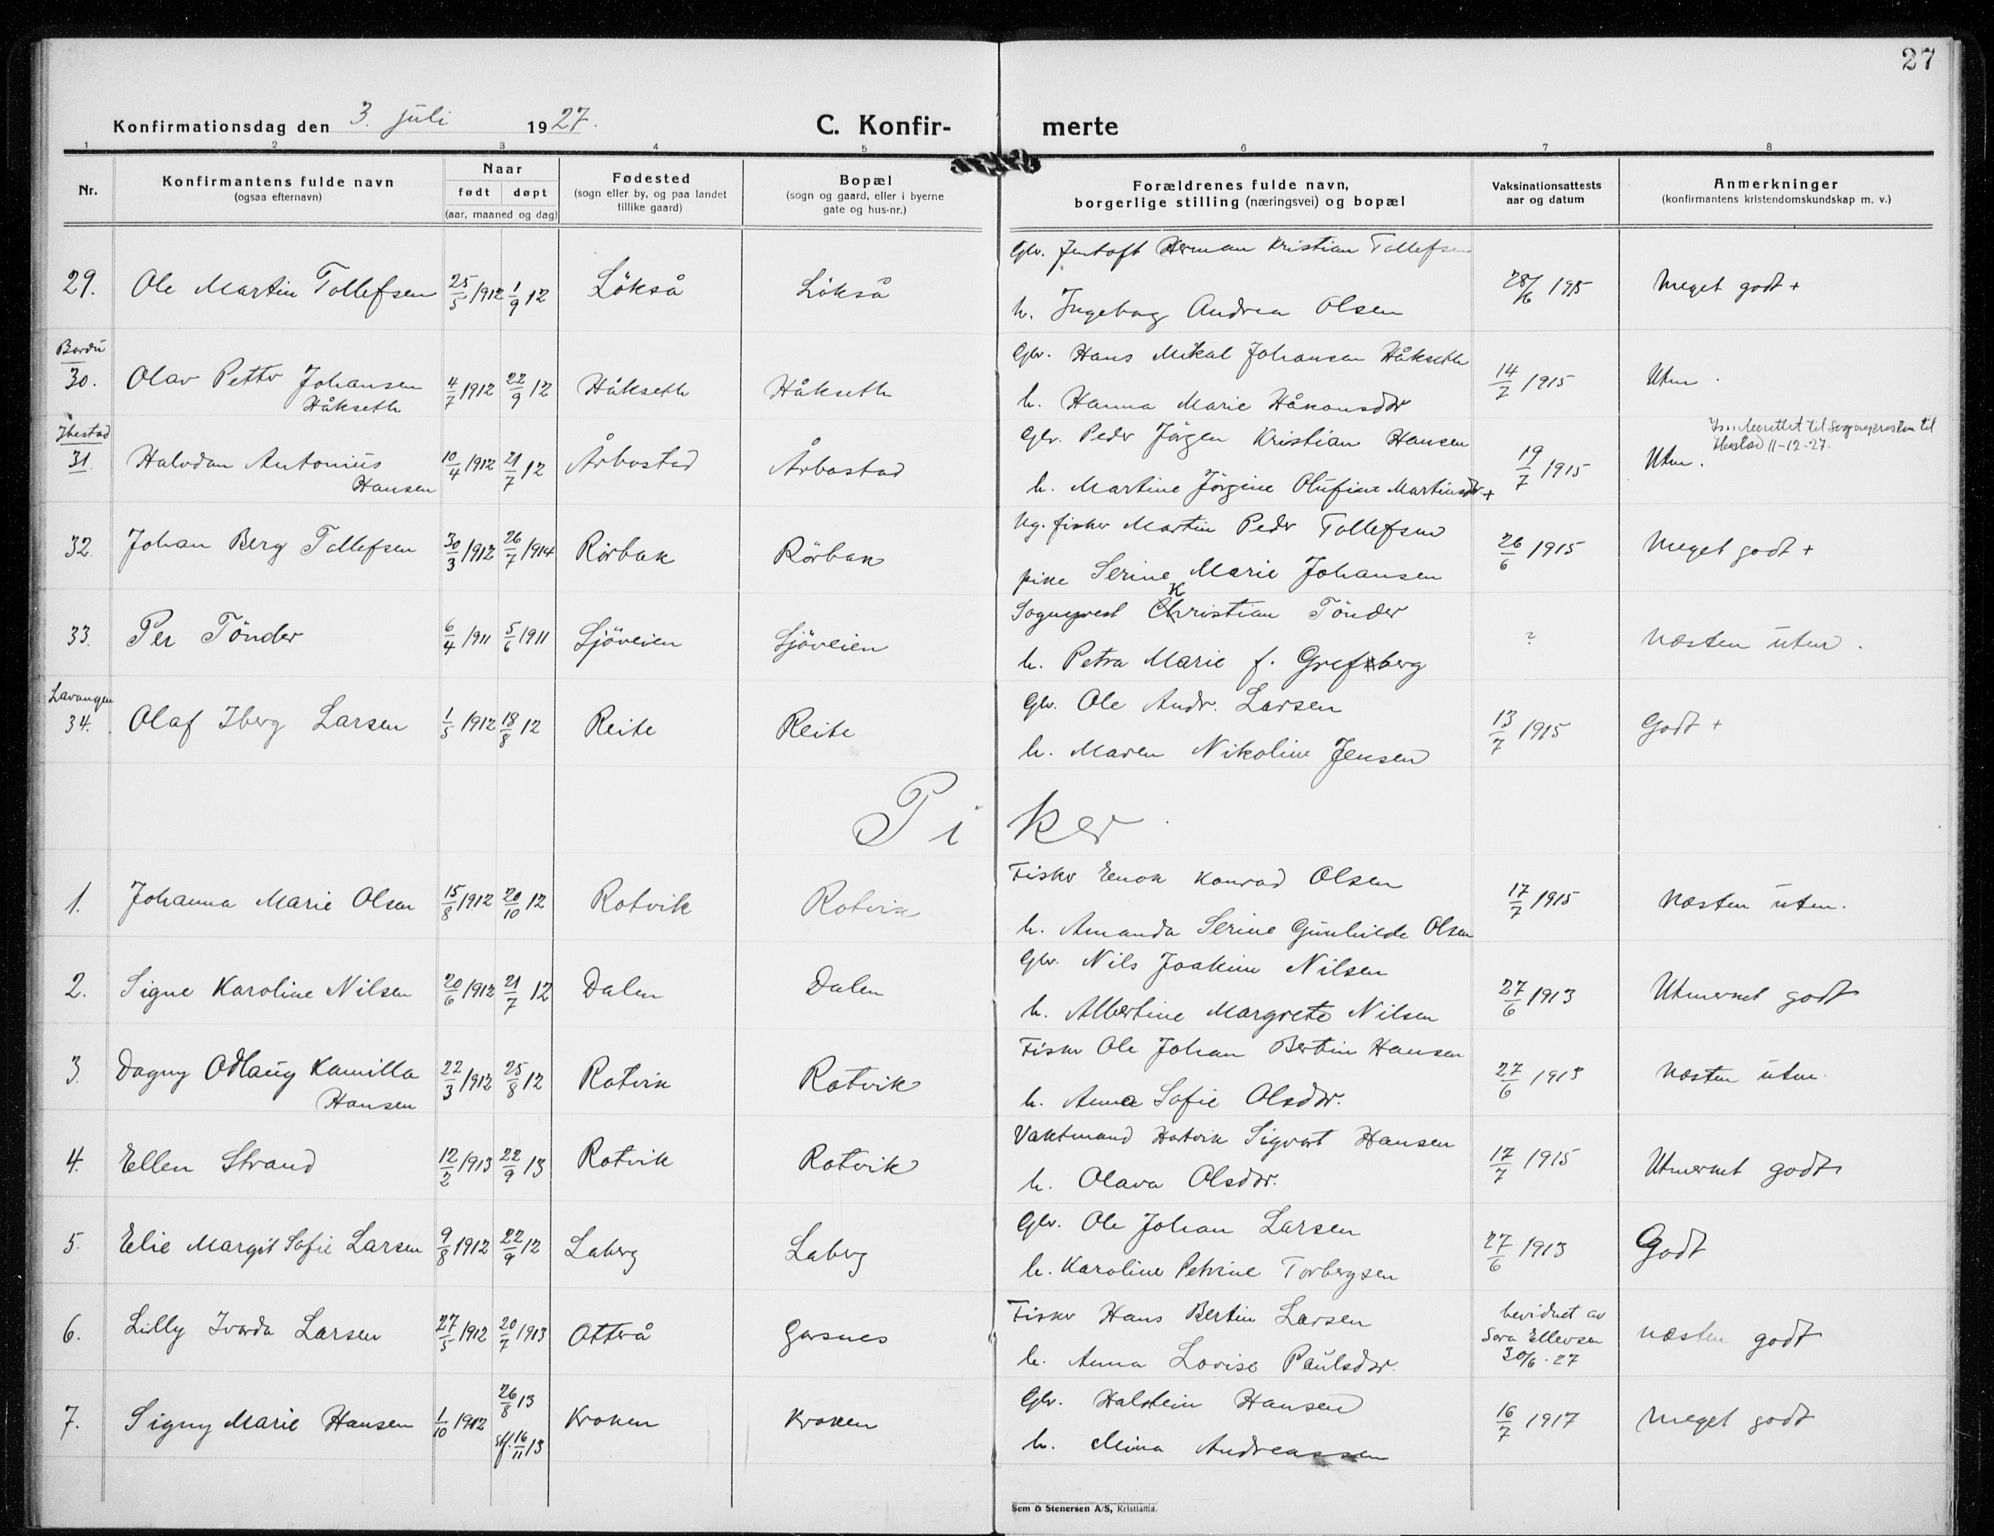 27
Konfirmationsdag den 3. juli 1927.
C. Konfir- merte
1 2 3 4 5 6 7 8
Nr.
Konfirmantens fulde navn
(ogsaa efternavn)
Naar
født døpt
(aar, maaned og dag)
Fødested
(sogn eller by, og paa landet
tillike gaard)
Bopæl
(sogn og gaard, eller i byerne
gate og hus-nr.)
Forældrenes fulde navn,
borgerlige stilling (næringsvei) og bopæl
Vaksinationsattests
aar og datum
Anmerkninger
(konfirmantens kristendomskundskap m. v.)
Gbr. Jentoft Herman Kristian Tollefsen
29. Ole Martin Tollefsen 25/5 1912 1/9 12 Lökså Lökså 28/6 1915 Meget godt +
h. Ingeborg Andrea Olsen
Bardu
Gbr. Hans Mikal Johansen Håkseth
30. Olav Petter Johansen 4/7 1912 22/9 12 Håkseth Håkseth 14/7 1915 Utm.
Håkseth
h. Hanna Marie Håkonsdtr
Ibestad
Gbr. Peder Jörgen Kristian Hansen
til Sognepresten til
Ibestad 11-12-27.
31. Halvdan Antonius 10/4 1912 21/7 12 Årbostad Årbostad 19/7 1915 Utm.
Hansen
h. Martine Jörgine Olufine Martinsdtr +
Ug. fisker Martin Peder Tollefsen
32. Johan Berg Tollefsen 30/3 1912 26/7 1914 Rörbak Rörbak 26/6 1915 Meget godt +
pike Serine Marie Johansen
K
Sogneprest Christian Tönder
33. Per Tönder 6/4 1911 5/6 1911 Sjöveien Sjöveien ? Næsten utm.
h. Petra Marie f. Grefsberg
Lavangen
Gbr. Ole Andr. Larsen
34. Olaf Iberg Larsen 1/5 1912 18/8 12 Reite Reite 13/7 1915 Godt +
h. Maren Nikoline Jensen
Piker
Fisker Enok Konrad Olsen
1. Johanna Marie Olsen 15/8 1912 20/10 12 Rotvik Rotvik 17/7 1915 Næsten utm.
h. Amanda Serine Gunhilde Olsen
Gbr. Nils Joakim Nilsen
2. Signe Karoline Nilsen 20/6 1912 21/7 12 Dalen Dalen 27/6 1913 Utmerket godt
h. Albertine Margrete Nilsen
Fisker Ole Johan Bertin Hansen
3. Dagny Odlaug Kamilla 22/3 1912 25/8 12 Rotvik Rotvik 27/6 1913 Næsten utm.
Hansen
h. Anna Sofie Olsdtr.
Vaktmand Hartvik Sigvart Hansen
4. Ellen Strand 12/2 1913 22/9 13 Rotvik Rotvik 17/7 1915 Utmerket godt
h. Olava Olsdtr.
Gbr. Ole Johan Larsen
5. Elie Margit Sofie Larsen 9/8 1912 22/9 12 Laberg Laberg 27/6 1913 Godt
h. Karoline Petrine Torbergsen
Fisker Hans Bertin Larsen
6. Lilly Ivarda Larsen 27/5 1912 20/7 1913 Otterå Gasnes bevidnet av
Sara Ellevsen
30/6-27 næsten godt
h. Anna Lovise Paulsdtr.
Gbr. Halstein Hansen
7. Signy Marie Hansen 1/10 1912 26/8 13
stf. 16/11 13 Kroken Kroken 16/7 1917 Meget godt
h. Mina Andreassen
Sem & Stenersen A/S, Kristiania.